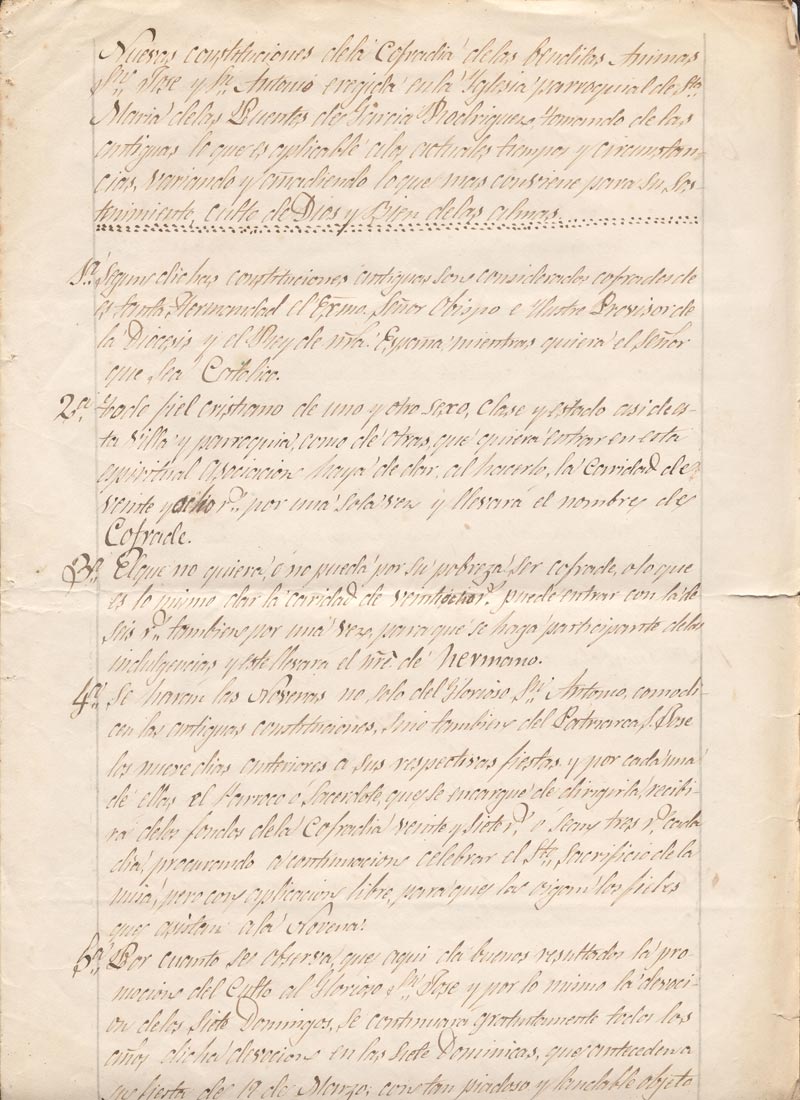 Nuevas constituciones de la Cofradia de las benditas Animas
Sn. Jose y Sn. Antonio eregida en la Yglesia parroquial de Sta.
Maria de las Puentes de Garcia Rodriguez, tomando de las
antiguas lo que es aplicable a los actuales tiempos y circunstan-
cias, variando y añadiendo lo que mas conviene para su sos-
tenimiento, culto de Dios y Bien de las almas.
1ª. Segun dichas constituciones antiguas son considerados cofrades de
esta Hermandad el Exmo. Señor Obispo e Ilustre Provisor de
la Diocesis y el Rey de nra. España, mientras quiera el Señor
que sea Catolico.
2ª. Todo fiel cristiano de uno y otro sexo, clase y estado asi de es-
ta Villa y parroquia, como de otras, que quiera entrar en esta
espiritual Asociacion haya de dar, al hacerlo, la caridad de
veinte y ocho rs. por una sola vez y llevará el nombre de
Cofrade.
3ª. El que no quiera, o no pueda por su pobreza, ser cofrade, o lo que
es lo mismo dar la caridad de veintiocho rs. puede entrar con la de
seis rs. tambien por una vez, para que se haga participante de las
indulgencias y este llevara el nre. de hermano.
4ª. Se harán las Novenas no solo del Glorioso Sn. Antonio, como di-
cen las antiguas constituciones, sino tambien del Patriarca S. Jose
los nueve dias anteriores a sus respectivas fiestas y por cada una
de ellas el Parroco ó Sacerdote, que se encargue de dirigirla, recibi-
ra de los fondos de la Cofradia veinte y siete rs. o sean tres rs. cada
dia, procurando a continuacion celebrar el Sto. Sacrificio de la
misa, pero con aplicacion libre, para que la oigan los fieles
que asistan a la Novena.
5ª. Por cuanto se observa, que aqui da buenos resultados la pro-
mocion del Culto al Glorioso Sn. Jose y por lo mismo la devoci-
on de los Siete Domingos, se continuara gratuitamente todos los
años dicha devocion en las siete Dominicas, que anteceden a
su fiesta de 19 de Marzo: con tan piadoso y laudable objeto